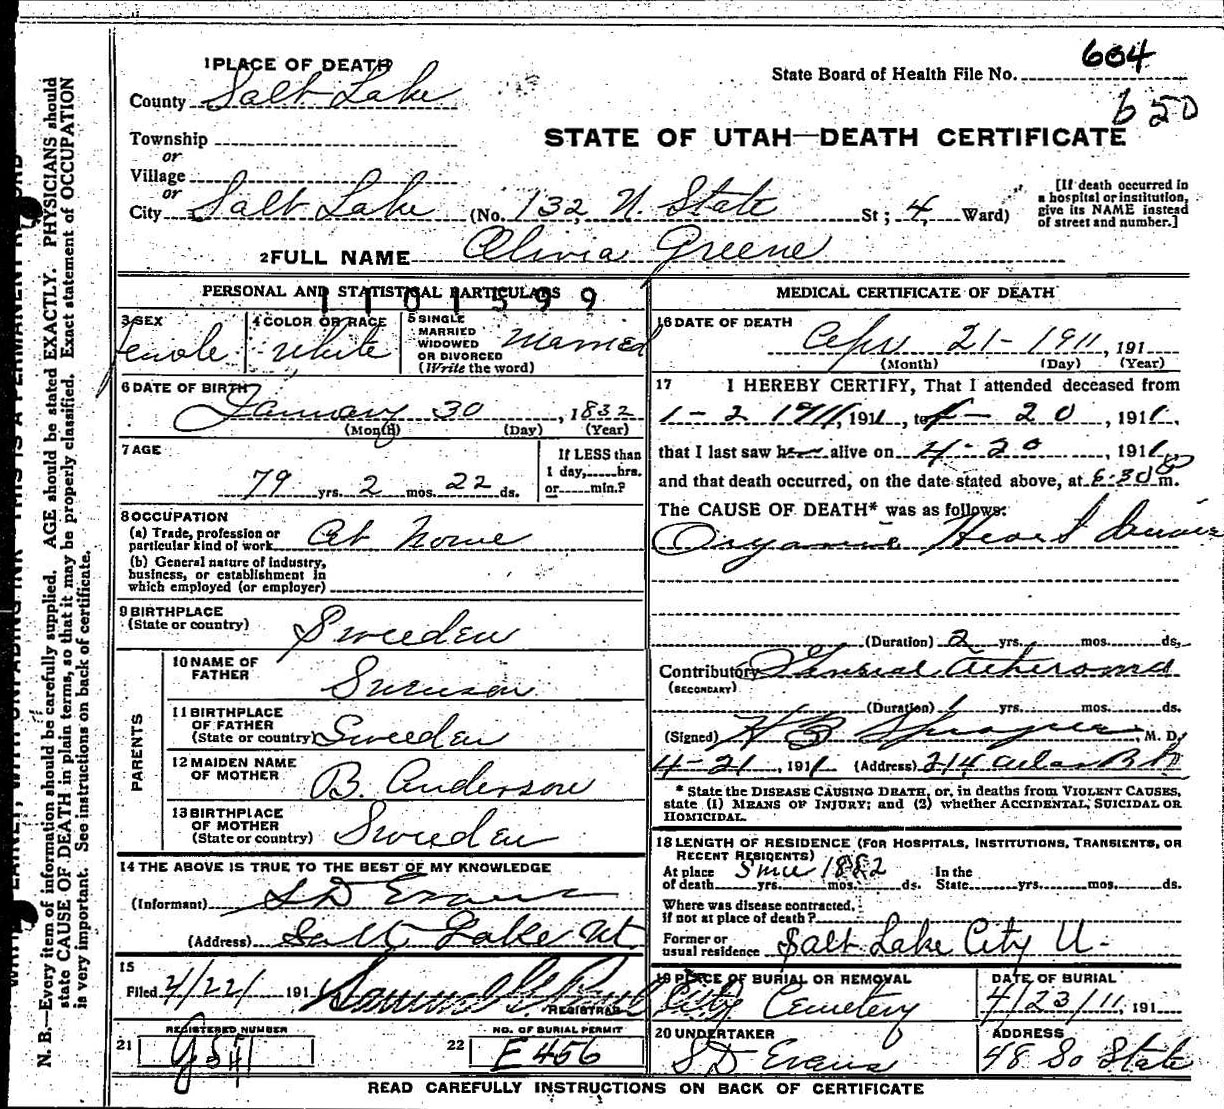 604
State Board of Health File No.
650
1 PLACE OF DEATH
County Salt Lake
STATE OF UTAH—DEATH CERTIFICATE
Township
or
Village
or
City Salt Lake (No. 132 N. State St; 4 Ward)
[If death occurred in a hospital or institution, give its NAME instead of street and number.]
2 FULL NAME Olivia Greene
PERSONAL AND STATISTICAL PARTICULARS
1101599
3 SEX Female
4 COLOR OR RACE White
5 SINGLE MARRIED WIDOWED OR DIVORCED (Write the word) Married
6 DATE OF BIRTH
January 30, 1832
(Month) (Day) (Year)
7 AGE
79 yrs. 2 mos. 22 ds.
If LESS than 1 day, hrs. or min.?
8 OCCUPATION
(a) Trade, profession or particular kind of work At home
(b) General nature of industry, business, or establishment in which employed (or employer)
9 BIRTHPLACE
(State or country) Sweeden
PARENTS
10 NAME OF FATHER Swenson
11 BIRTHPLACE OF FATHER (State or country) Sweeden
12 MAIDEN NAME OF MOTHER B. Anderson
13 BIRTHPLACE OF MOTHER (State or country) Sweeden
14 THE ABOVE IS TRUE TO THE BEST OF MY KNOWLEDGE
(Informant) S D Evans
(Address) Salt Lake Ut.
15
Filed 4/22/ 191
REGISTRAR
21 REGISTERED NUMBER G541
22 NO. OF BURIAL PERMIT E456
MEDICAL CERTIFICATE OF DEATH
16 DATE OF DEATH
Apr 21-1911, 191
(Month) (Day) (Year)
17 I HEREBY CERTIFY, That I attended deceased from
1-2 1911, 1911, to 4-20, 1911,
that I last saw her alive on 4-20, 1911
and that death occurred, on the date stated above, at 6-30 P m.
The CAUSE OF DEATH* was as follows:
Organic Heart Disease
(Duration) 2 yrs. mos. ds.
Contributory General Atheroma
(SECONDARY)
(Duration) yrs. mos. ds.
(Signed) H B Sprague, M. D.
4-21, 1911 (Address) 214 Atlas Blk
* State the DISEASE CAUSING DEATH, or, in deaths from VIOLENT CAUSES,
state (1) MEANS OF INJURY; and (2) whether ACCIDENTAL, SUICIDAL OR
HOMICIDAL.
18 LENGTH OF RESIDENCE (FOR HOSPITALS, INSTITUTIONS, TRANSIENTS, OR
RECENT RESIDENTS)
At place of death Since 1882 yrs. mos. ds. In the State yrs. mos. ds.
Where was disease contracted, if not at place of death?
Former or usual residence Salt Lake City U-
19 PLACE OF BURIAL OR REMOVAL City Cemetery
DATE OF BURIAL 4/23/11, 191
20 UNDERTAKER S D Evans
ADDRESS 48 So State
READ CAREFULLY INSTRUCTIONS ON BACK OF CERTIFICATE
N. B.—Every item of information should be carefully supplied. AGE should be stated EXACTLY. PHYSICIANS should
state CAUSE OF DEATH in plain terms, so that it may be properly classified. Exact statement of OCCUPATION
is very important. See instructions on back of certificate.